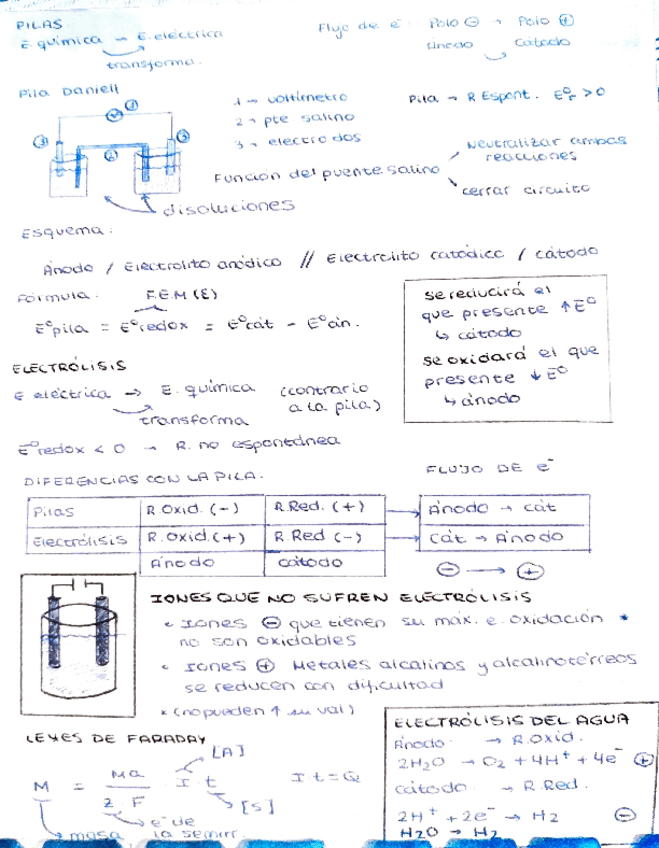 PILAS
E química → E. eléctrica
transforma.
Flujo de e⁻: Polo ⊖ → Polo ⊕
Ánodo Cátodo
Pila Daniell
1 → voltímetro
2 → pte salino
3 → electrodos
Pila → R Espont. E°r > 0
Función del puente salino
Neutralizar ambas reacciones
cerrar circuito
disoluciones
Esquema:
Ánodo / Electrolito anódico // Electrolito catódico / cátodo
Fórmula. F.E.M (E)
E°pila = E°redox = E°cát - E°án.
se reducirá el
que presente ↑E°
↳ cátodo
se oxidará el que
presente ↓E°
↳ ánodo
ELECTRÓLISIS
E eléctrica → E. química (contrario
a la pila)
transforma
E°redox < 0 → R. no espontánea
DIFERENCIAS CON LA PILA.
FLUJO DE e⁻
Pilas R.Oxid. (-) R.Red. (+) → Ánodo → cát
Electrólisis R.Oxid. (+) R.Red (-) → Cát → Ánodo
Ánodo cátodo ⊖ → ⊕
IONES QUE NO SUFREN ELECTRÓLISIS
• Iones ⊖ que tienen su máx. e. oxidación *
no son oxidables
• Iones ⊕ Metales alcalinos y alcalinotérreos
se reducen con dificultad
* (no pueden ↑ su val)
LEYES DE FARADAY
[A]
M = Ma / z . F . I . t
I t = Q
[s]
e⁻ de
la semirr.
masa
ELECTRÓLISIS DEL AGUA
Ánodo → R.Oxid.
2H₂O → O₂ + 4H⁺ + 4e⁻ ⊕
cátodo → R.Red.
2H⁺ + 2e⁻ → H₂ ⊖
H₂O → H₂